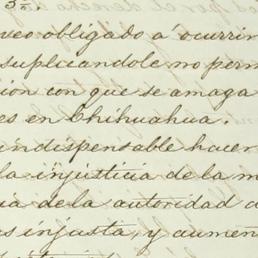 veo obligado á ocurrir
suplicandole no perm
ion con que se amaga
es en Chihuahua.
indispensable hacer
la injusticia de la m
ia de la autoridad a
s injusta, y aumen